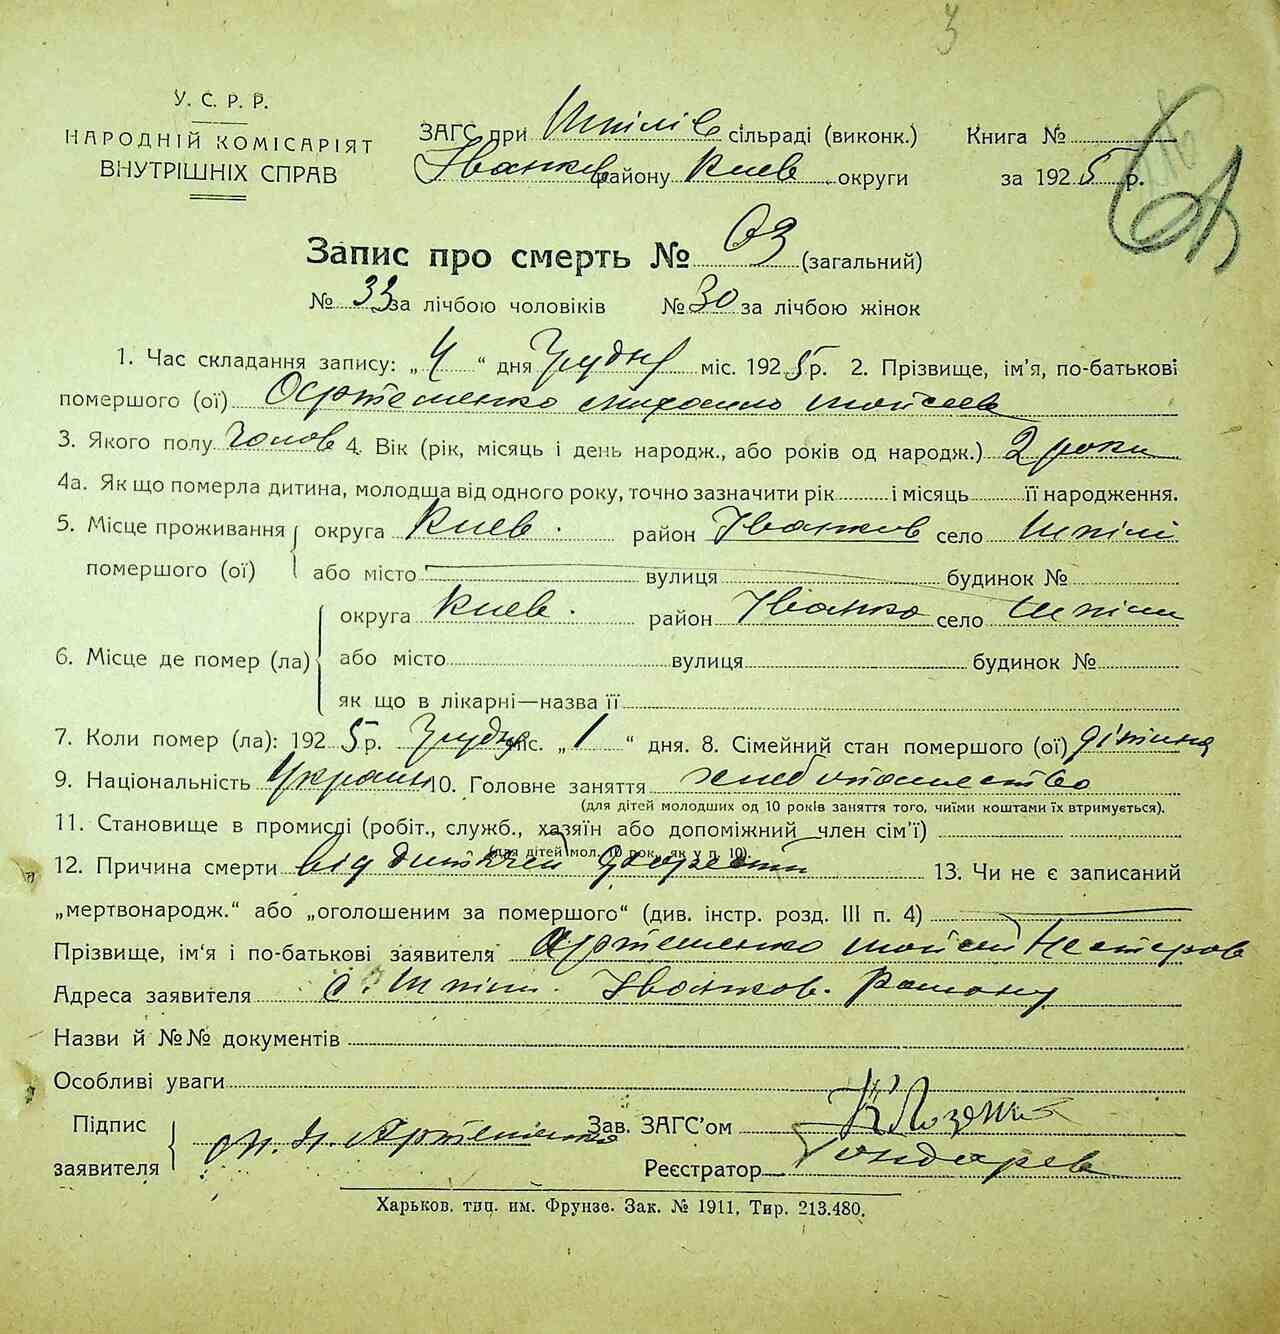 3
У. С. Р. Р.
НАРОДНІЙ КОМІСАРІЯТ
ВНУТРІШНІХ СПРАВ
ЗАГС при Шпилів сільраді (виконк.)
Іванков району Киев округи
Книга №
за 1925 р.
Запис про смерть № 63 (загальний)
№ 33 за лічбою чоловіків № 30 за лічбою жінок
1. Час складання запису: „ 4 “ дня Грудня міс. 1925 р. 2. Прізвище, ім'я, по-батькові
помершого (ої) Артеменко Михаило Мойсеев
3. Якого полу Чолов 4. Вік (рік, місяць і день народж., або років од народж.) 2 роки
4а. Як що померла дитина, молодща від одного року, точно зазначити рік і місяць її народження.
5. Місце проживання помершого (ої) округа Киев. район Іванков село Шпилі
або місто вулиця будинок №
6. Місце де помер (ла) округа Киев. район Іванко село Шпили
або місто вулиця будинок №
як що в лікарні—назва її
7. Коли помер (ла): 1925 р. Грудня міс. „ 1 “ дня. 8. Сімейний стан помершого (ої) дітина
9. Національність Украин 10. Головне заняття хлебопашество
(для дітей молодших од 10 років заняття того, чиїми коштами їх втримується).
11. Становище в промислі (робіт., служб., хазяїн або допоміжний член сім'ї)
(для дітей мол. 10 рок., як у п. 10).
12. Причина смерти від 13. Чи не є записаний
„мертвонародж.“ або „оголошеним за помершого“ (див. інстр. розд. III п. 4)
Прізвище, ім'я і по-батькові заявителя Артеменко Мойсей Нестеров
Адреса заявителя с. Шпили. Іванков. Району
Назви й №№ документів
Особливі уваги
Підпис заявителя М. Н. Артеменко Зав. ЗАГС'ом
Реєстратор
Харьков. тип. им. Фрунзе. Зак. № 1911. Тир. 213.480.